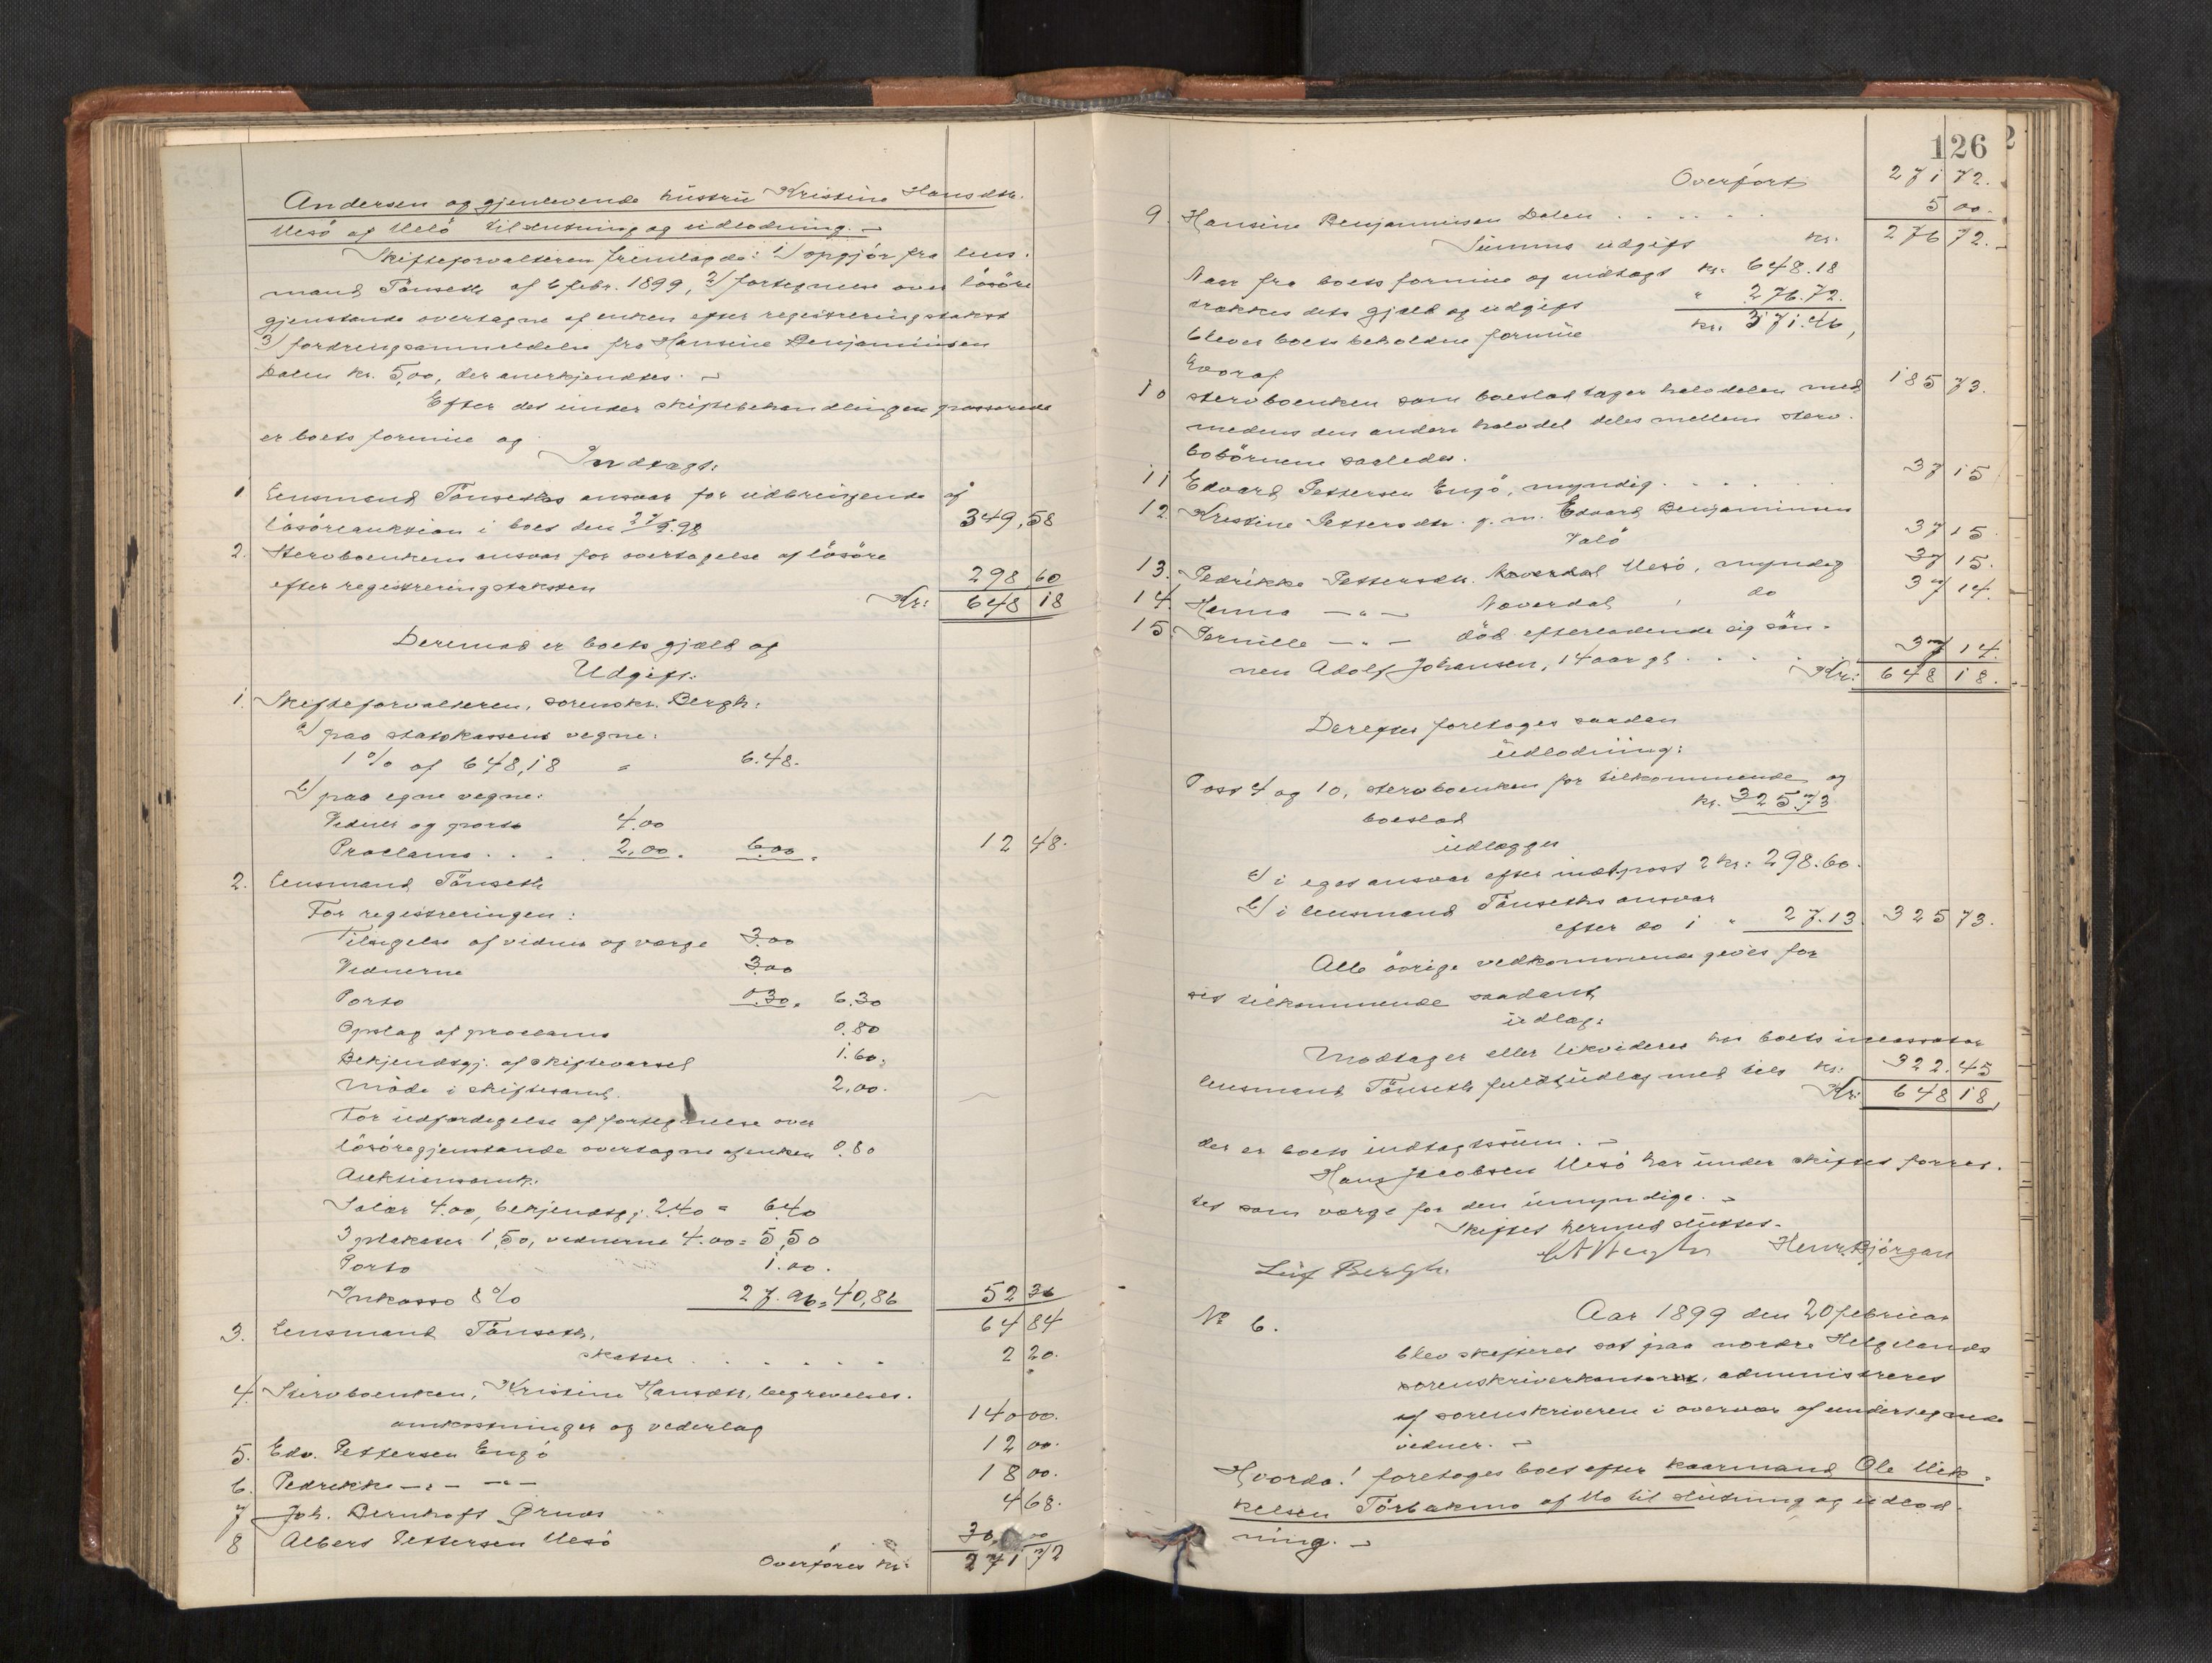 Andersen og gjenlevende hustru Kristine Hansdtr.
Uesö af Uelö til slutning og udlodning.
Skifteforvalteren fremlagde: 1) opgjör fra lens-
mand Tönseth af 6 febr. 1899, 2) fortegnelse over lösöre
gjenstande overtagne af enken efter registreringstakst
3) fordringsanmeldelse fra Hansine Benjaminsen
Dalen kr. 5,00, der anerkjendtes.
Efter det under skiftebehandlingen passerede
er boets formue og
Indtægt:
1 Lensmand Tönseths ansvar for udbringende af
lösöreauktion i boet den 27/5.98 349,58
2. Stervboenkens ansvar for overtagelse af lösöre
efter registreringstaksten 298 60
Kr: 648 18
Derimod er boets gjæld og
Udgift:
1. Skifteforvalteren, sorenskr. Bergh:
a) paa statskassens vegne:
1 % af 648,18 = 6.48.
b) paa egne vegne:
Vidner og porto 4.00
Proclama . . . 2,00. 6.00 = 12 48.
2. Lensmand Tönseth
For registreringen:
Tilsigelse af vidner og værge 3.00
Vidnerne 3.00
Porto 0.30 = 6.30
Opslag af proclama 0.80
Bekjendtgj. af skiftevarsel 1.60
Möde i skiftesaml. 2,00.
For udfærdigelse af fortegnelse over
lösöregjenstande overtagne af enken 0.80
Auktionsomk:
Salær 4.00, bekjendtgj. 2.40 = 6.40
3 plakater 1,50, vidnerne 4.00 = 5,50
Porto 1.00.
Inkasso 8% 27.96 = 40,86 52 36
64 84
3. Lensmand Tönseth,
skatter . . . . . . 2 20.
4. Stervboenken, Kristine Hansdtr, begravelses-
omkostninger og vederlag 140 00.
5. Edv. Pettersen Engö 12 00.
6. Pedrikke -"- -"- 18 00.
7 Joh. Bernhoft Ørnes 4 68.
8 Albert Pettersen Uesö 30, 00
Overföres kr: 271 72
126
Overfört 271 72.
9. Hansine Benjaminsen Dalen . . . . . . 5 00.
Summa udgift kr. 276 72.
Naar fra boets formue og indtægt kr. 648.18
trækkes dets gjæld og udgift " 276.72.
bliver boets beholdne formue kr. 371.46,
hvoraf
10 stervboenken som boeslod tager halvdelen med 185 73.
medens den anden halvdel deles mellem sterv-
bobörnene saaledes.
11 Edvard Pettersen Engö, myndig . . . . . . 37 15
12. Kristine Pettersdtr. g. m. Edvard Benjaminsen
Valö 37 15.
13. Pedrikke Pettersdtr. Uesö, myndig 37 15.
14 Hanna -"- Naverdal, do 37 14.
15. Pernille -"- död efterladende sig sön-
nen Adolf Johansen, 14 aar gl. . . . . . 37 14.
Kr: 648 18.
Derefter foretoges saadan
udlodning:
Post 4 og 10, stervboenken for tilkommende og
boeslod kr. 325.73
udlægges
a) i eget ansvar efter indt. post 2 kr: 298.60.
b) i lensmand Tönseths ansvar
efter do 1 " 27.13. 325 73.
Alle övrige vedkommende gives for
sit tilkommende saadant
udlæg:
Modtager eller likvideres hos boets incassator
lensmand Tönseth fuldt udlæg med tils kr: 322.45
Kr: 648 18,
der er boets indtægtssum.
Hans Jacobsen Uesö har under skiftet forret-
tet som værge for den umyndige.
Skiftet hermed sluttet.
Henr. Bjørgan
Leif Bergh.
No 6. Aar 1899 den 20 februar
blev skifteret sat paa nordre Helgelands
sorenskriverkontor, administreret
af sorenskriveren i overvær af undertegnede
vidner.
Hvorda! foretoges boet efter kaarmand Ole Mik-
kelsen Törbakmo af Mo til slutning og udlod-
ning.